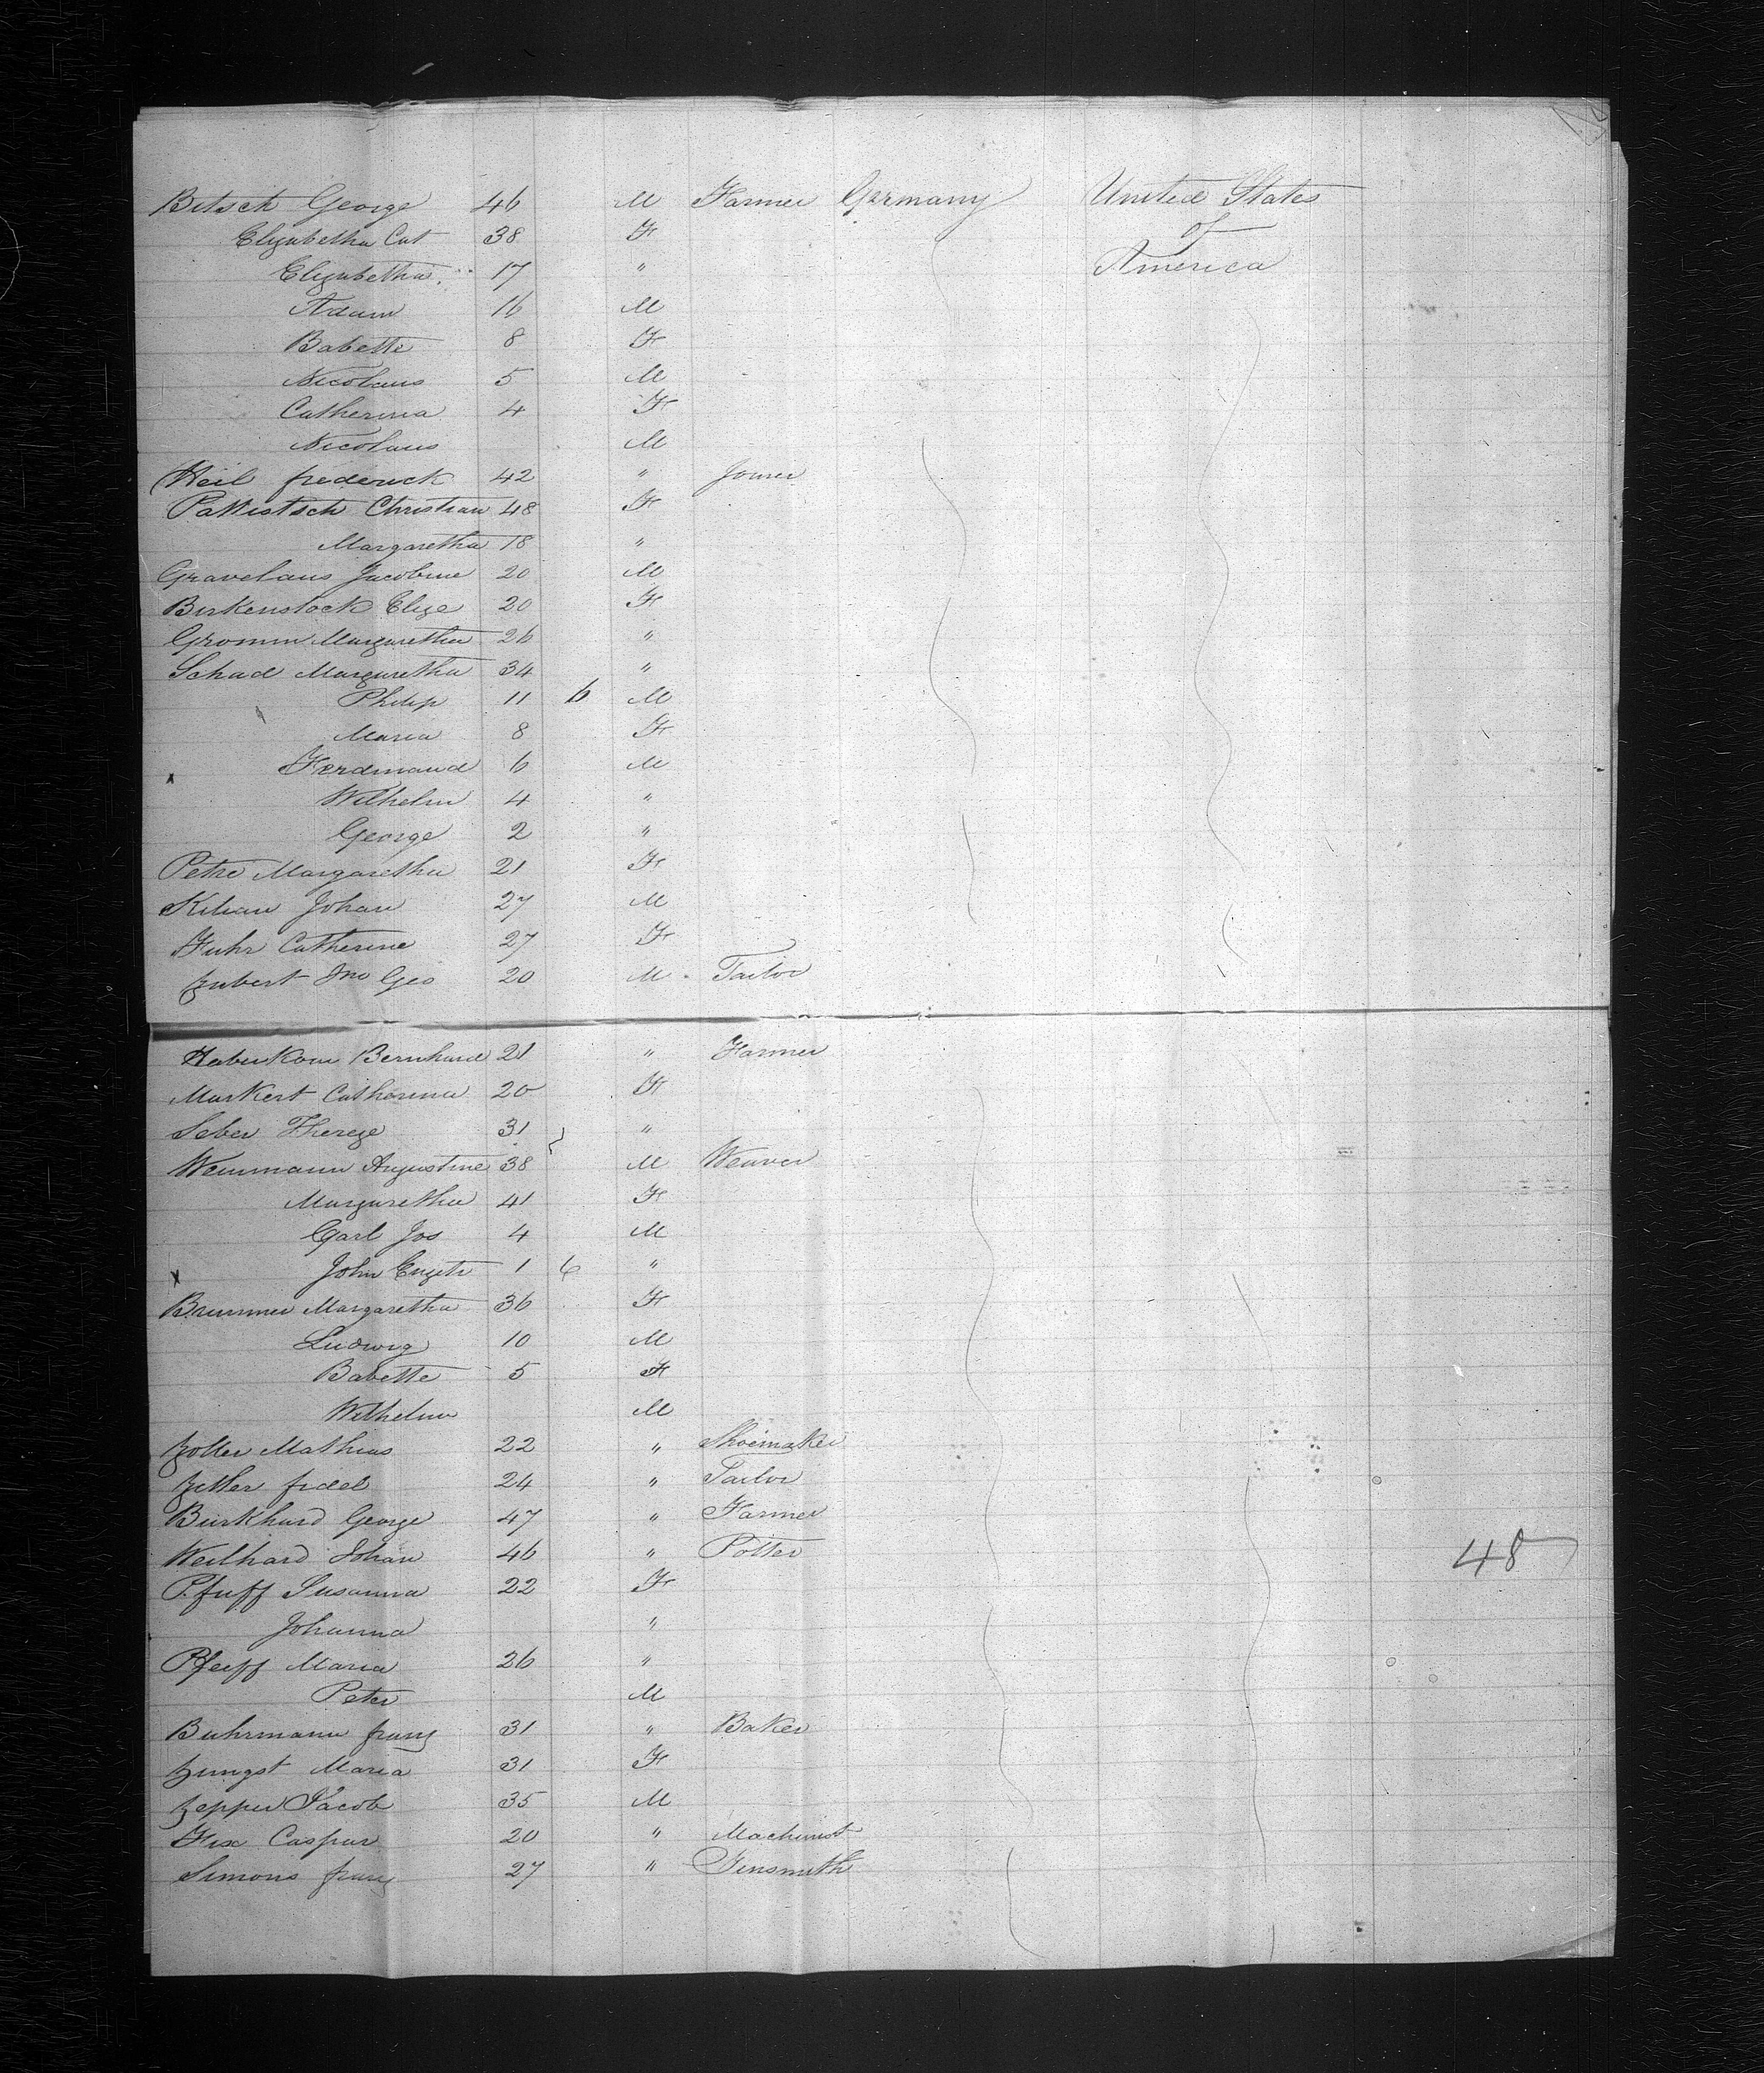 Bitsch George 46 M Farmer Germany United States
Elizabetha Cat 38 F of
Elizabetha 17 " America
Adam 16 M
Babette 8 F
Nicolaus 5 M
Catherina 4 F
Nicolaus M
Heil frederick 42 " Joiner
Pattistsch Christian 48 F
Margaretha 18 "
Gravelaus Jacobine 20 M
Birkenstock Elize 20 F
Gromm Margaretha 26 "
Schad Margaretha 34 "
Philip 11 6 M
Maria 8 F
x Ferdinand 6 M
Wilhelm 4 "
George 2 "
Petri Margaretha 21 F
Kilian Johan 27 M
Fuhr Catherine 27 F
Zubert Jno Geo 20 M Tailor
Haberkorn Bernhard 21 " Farmer
Markert Catharina 20 F
Seber Thereze 31 "
Weinmann Augustine 38 M Weaver
Margaretha 41 F
Carl Jos 4 M
x John 1 6 "
Brummer Margaretha 36 F
Ludwig 10 M
Babette 5 F
Wilhelm M
Zoller Mathias 22 " Shoemaker
Zetler fidel 24 " Tailor
Burkhard George 47 " Farmer
Weilhard Johan 46 " Potter 48
Pfuff Susanna 22 F
Johanna "
Pfeiff Maria 26 "
Peter M
Buhrmann franz 31 " Baker
Zungst Maria 31 F
Zepper Jacob 35 M
Fix Caspar 20 " Machinist
Simons franz 27 " Tinsmith